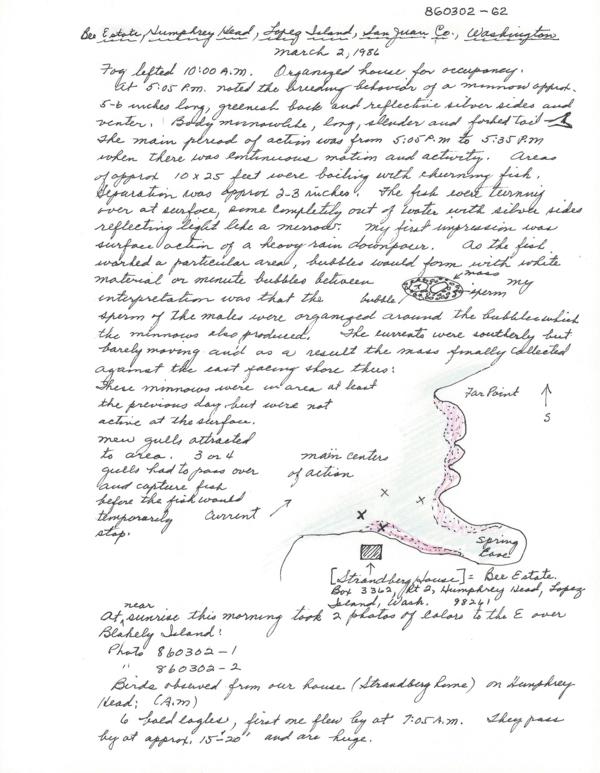 860302-62
Bee Estate, Humphrey Head, Lopez Island, San Juan Co., Washington
March 2, 1986
Fog lifted 10:00 A.M. Organized house for occupancy.
At 5:05 P.M. noted the breeding behavior of a minnow approx.
5-6 inches long, greenish back and reflective silver sides and
venter. Body minnowlike, long, slender and forked tail
The main period of action was from 5:05 P.M. to 5:35 P.M
when there was continuous motion and activity. Areas
of approx 10 x 25 feet were boiling with churning fish.
Separation was approx 2-3 inches. The fish were turning
over at surface, some completely out of water with silver sides
reflecting light like a mirrow. My first impression was
surface action of a heavy rain downpour. As the fish
worked a particular area, bubbles would form with white
material or minute bubbles between
mass
my
interpretation was that the
bubble
sperm
sperm of the males were organized around the bubbles which
the minnows also produced. The currents were southerly but
barely moving and as a result the mass finally collected
against the east facing shore thus:
These minnows were in area at least
the previous day but were not
active at the surface.
Mew gulls attracted
to area. 3 or 4
gulls had to pass over
and capture fish
before the fish would
temporarily
stop.
Far Point
S
main centers
of action
Current
Spring
Cove
[Strandberg House] = Bee Estate.
Box 3362, Rt 2, Humphrey Head, Lopez
Island, Wash. 98261
near
At sunrise this morning took 2 photos of colors to the E over
Blakely Island:
Photo 860302-1
" 860302-2
Birds observed from our house (Strandberg home) on Humphrey
Head: (A.M)
6 bald eagles, first one flew by at 7:05 A.M. They pass
by at approx. 15'-20' and are huge.